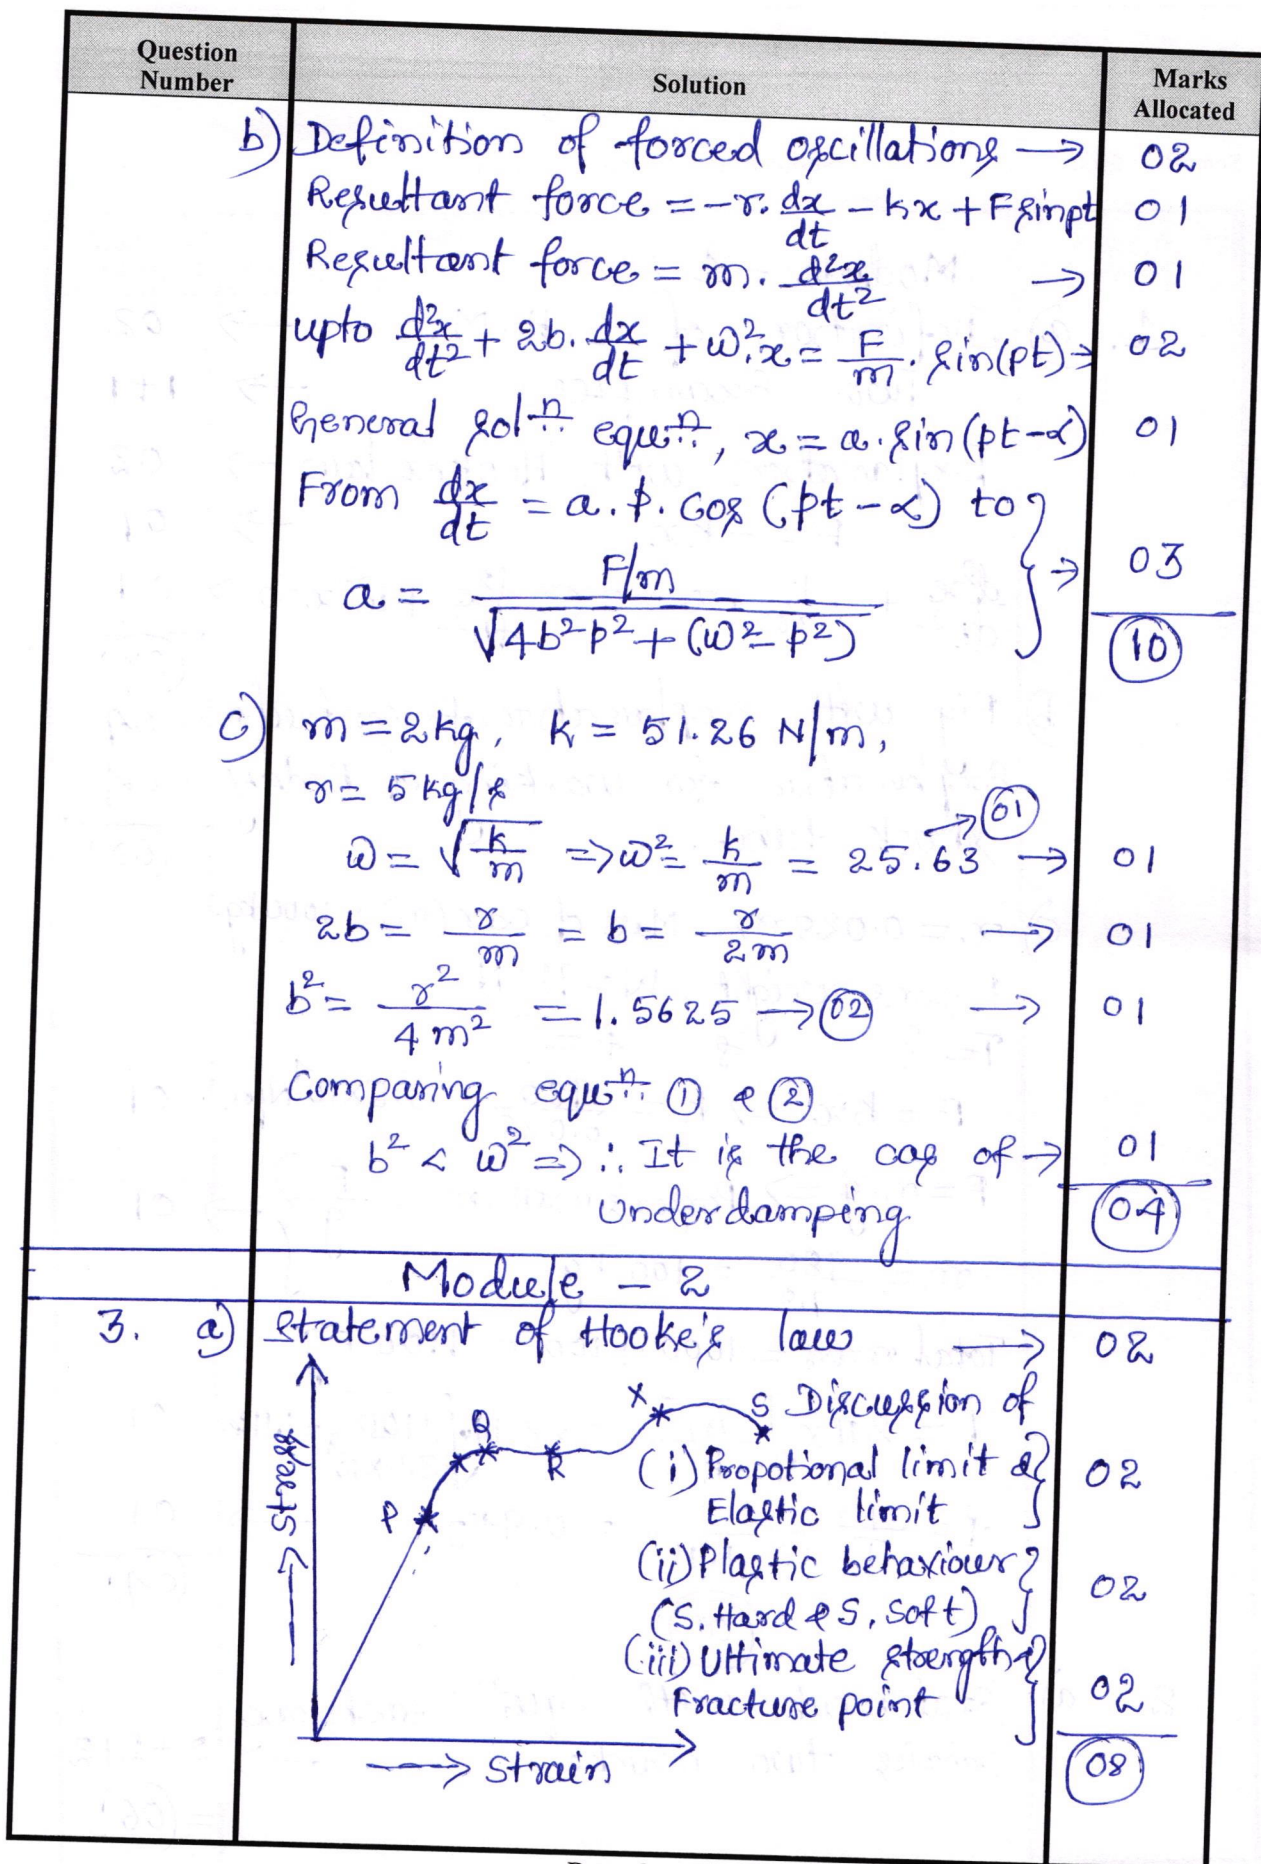 Question Number | Solution | Marks Allocated
b) Definition of forced oscillations → 02
Resultant force = -r. dx/dt - kx + F sinpt 01
Resultant force = m. d²x/dt² → 01
upto d²x/dt² + 2b. dx/dt + ω².x = F/m . sin(pt) → 02
General solⁿ equⁿ, x = a. sin(pt-α) 01
From dx/dt = a. p. cos (pt-α) to
a = F/m / √4b²p² + (ω² - p²) } → 03
10
c) m = 2kg, k = 51.26 N/m,
r = 5kg/s
ω = √k/m => ω² = k/m = 25.63 → 01 → 01
2b = r/m = b = r/2m → 01
b² = r²/4m² = 1.5625 → 02 → 01
Comparing equⁿ ① & ②
b² < ω² => ∴ It is the cas of → 01
Underdamping 04
Module - 2
3. a) Statement of Hooke's law → 02
→ Stress
P Q R X S
→ Strain
Discussion of
(i) Propotional limit &
Elastic limit } 02
(ii) Plastic behaviour
(S. Hard & S. Soft) } 02
(iii) Ultimate strength &
Fracture point } 02
08